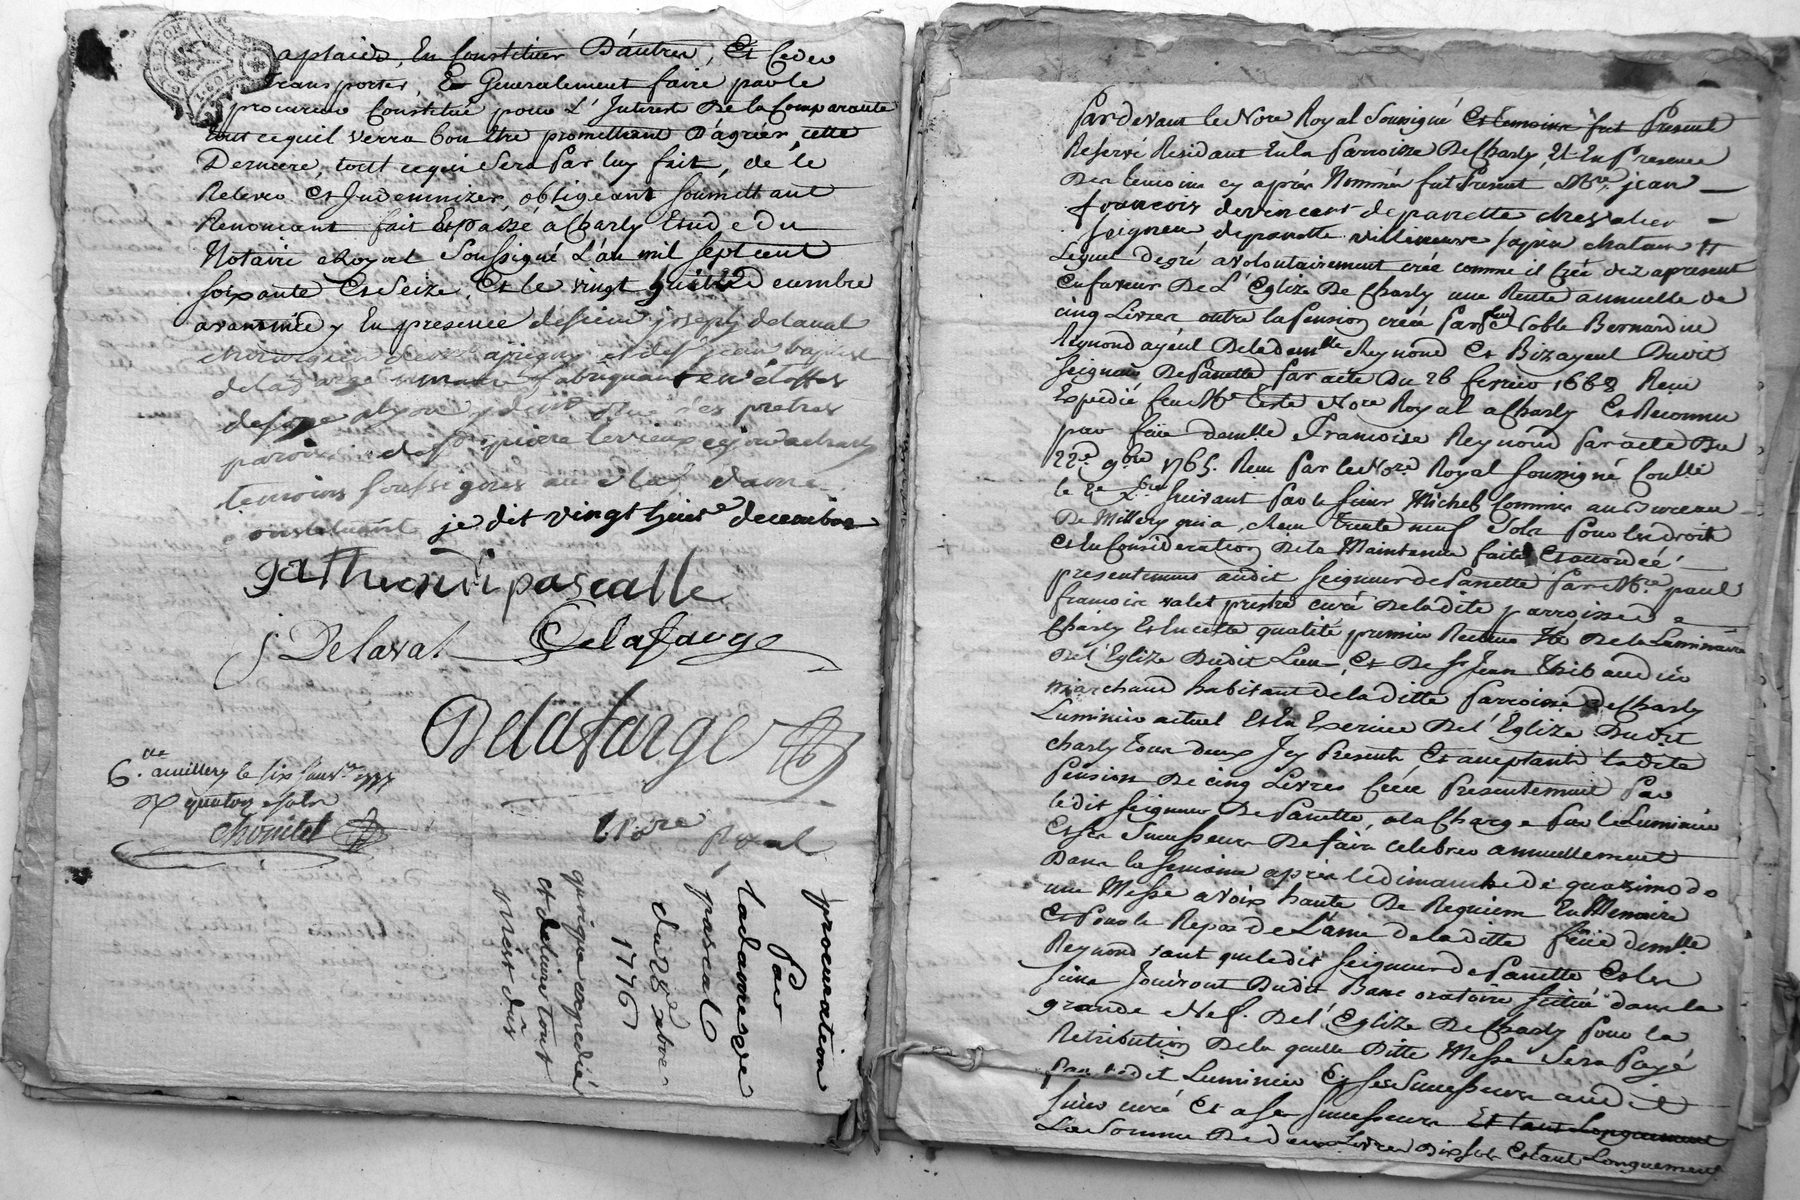 aplaids, En Constituer D'autres, Et Ceder
transporter, Et Generalement faire par le
procureur Constitué pour L'Interest De la Comparante
tout cequil verra bon Etre promettant D'agréer cette
Derniere, tout cequi Sera Par luy fait, de le
Relever Et Indemnizer, obligeant Soumettant
Renoncant fait Et Passé à Charly Etude du
Notaire Royal Soussigné L'an mil Sept cent
Soixante Et Seize, Et le vingt huit Decembre
avant midy En presence de sieur joseph delaval
et de sr jean baptiste
delafarge fabriquant en étoffes
de soye a lyon y demt rue des pretres
paroisse de st pierre le vieux ce jour a charly
temoins soussignés avec la dame
constituant je dit vingt huit decembre
pascalle
j Delaval Delafarge
Delafarge
6.
a millery le six janvr 1777
quatorze sols
Nore Royal
procuration
Par
la dame ve
pascal
du 28 xbre
1776
quoique expedié
et delivré tout
m'est dûs
Par devant le Nore Royal Soussigné Et temoins fut Present
Reservé Residant En la Parroisse De Charly Et En Presence
Des temoins cy après Nommés fut Present Mre jean
francois devincent de panette chevalier
seigneur de panette villeneuve
Lequel de gré a volontairement créé comme il Crée dez apresent
En faveur De L'Eglize De Charly une Rente annuelle de
cinq Livres outre la Pension créée Par feu Noble Bernardin
Reynond ayeul De la demlle Reynond Et Bizayeul Dudit
Seigneur De Panette Par acte Du 26 fevrier 1663 Reçu
Expedié feu Me Nore Royal a Charly Et Reconnu
par feüe demlle Francoise Reynond Par acte Du
22e 9bre 1765. Recu Par le Nore Royal Soussigné Conllé
le 2e Xbre Suivant Par le Sieur Michel Commis au Bureau
De Millery qui a Recu trente neuf Sols Pour les droits
Et En Consideration De la Maintenue faite Et accordée
presentement audit Seigneur de Panette Par Mre paul
francois valet prestre curé De la dite parroisse de
Charly Et En cette qualité premier Recteur De la Luminaire
De L'Eglize Dudit Lieu Et De Sr Jean Thibaudier
Marchand habitant de la ditte Parroisse de Charly
Luminier actuel Et En Exercice De L'Eglize Dudit
charly tous deux Icy Presents Et acceptants la dite
Pension De cinq Livres Créée Presentement Par
ledit Seigneur De Panette, a la Charge Par le Luminier
Et Ses Successeurs De faire celebrer annuellement
Dans la Semaine après le dimanche de quazimodo
une Messe a voix haute De Requiem En Memoire
Et Pour le Repos de L'ame de la ditte feüe demlle
Reynond tant que ledit Seigneur de Panette Et les
Siens Jouiront Dudit Banc oratoire Scitué dans la
grande Nef. De L'Eglize De Charly Pour la
Retribution De la quelle Ditte Messe Sera Payé
Par ledit Luminier Et Ses Successeurs audit
Sieur curé Et a Ses Successeurs Et tant Longuement
La Somme De deux Livres Dix Sols Et tant Longuement